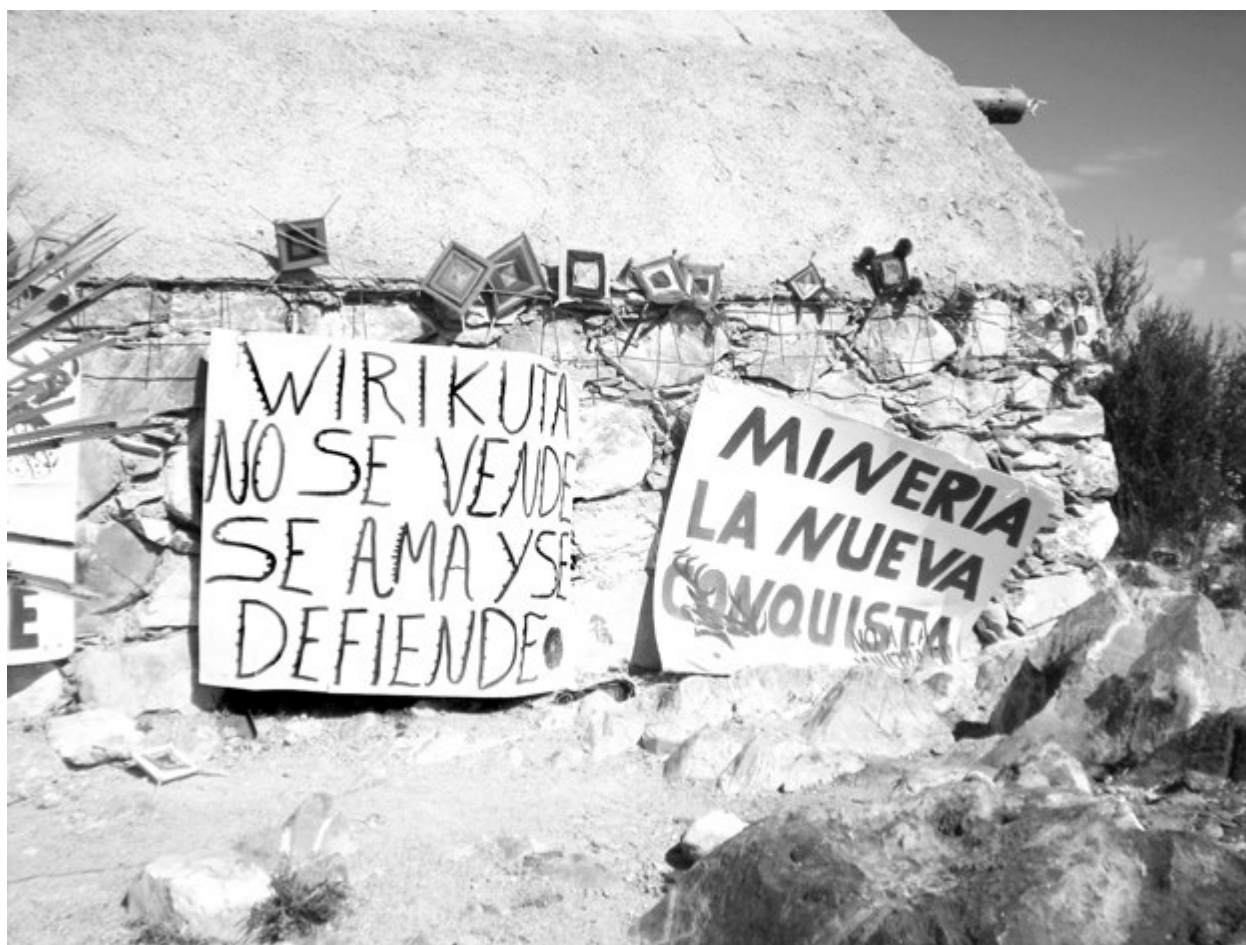 WIRIKUTA
NO SE VENDE
SE AMA Y SE
DEFIENDE.
MINERIA
LA NUEVA
CONQUISTA
E